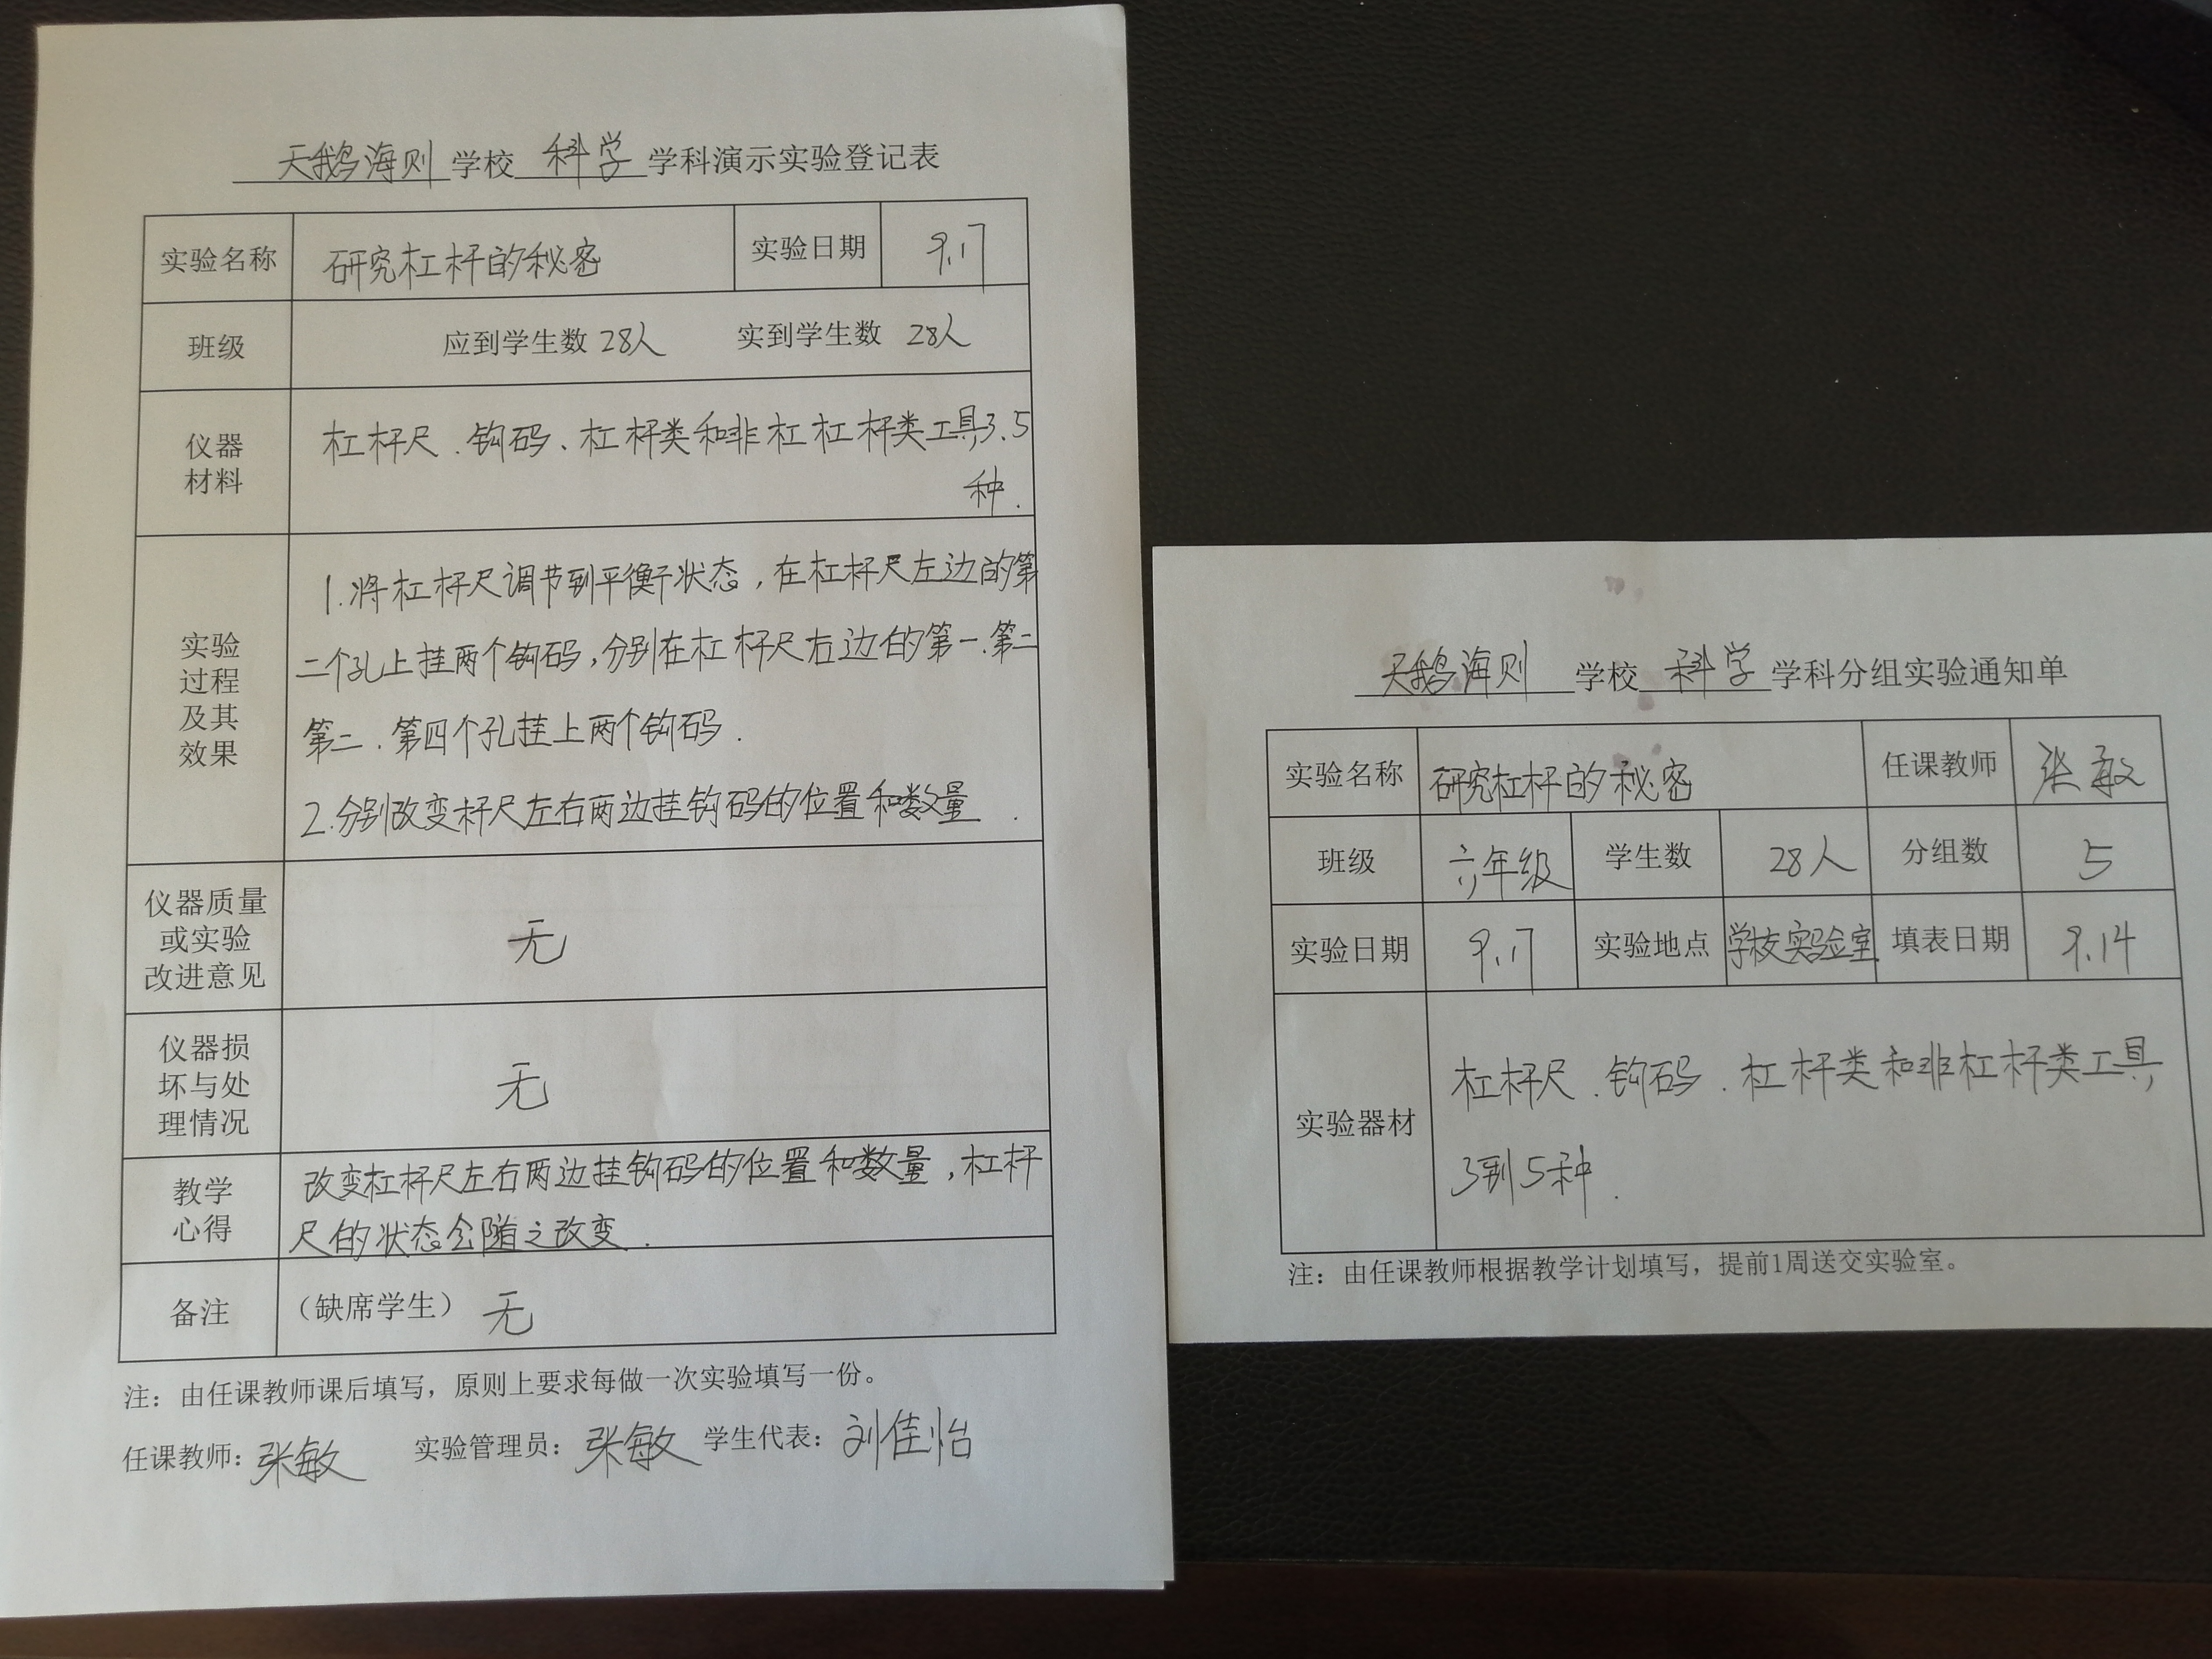 天鹅海则 学校 科学 学科演示实验登记表
实验名称 研究杠杆的秘密 实验日期 9.17
班级 应到学生数 28人 实到学生数 28人
仪器
材料
杠杆尺.钩码、杠杆类和非杠杠杆类工具3.5
种.
实验
过程
及其
效果
1.将杠杆尺调节到平衡状态,在杠杆尺左边的第
二个孔上挂两个钩码,分别在杠杆尺右边的第一.第二
第二.第四个孔挂上两个钩码.
2.分别改变杆尺左右两边挂钩码的位置和数量.
仪器质量
或实验
改进意见
无
仪器损
坏与处
理情况
无
教学
心得
改变杠杆尺左右两边挂钩码的位置和数量,杠杆
尺的状态会随之改变.
备注 (缺席学生) 无
注：由任课教师课后填写，原则上要求每做一次实验填写一份。
任课教师：张敏 实验管理员：张敏 学生代表：刘佳怡
天鹅海则 学校 科学 学科分组实验通知单
实验名称 研究杠杆的秘密 任课教师 张敏
班级 六年级 学生数 28人 分组数 5
实验日期 9.17 实验地点 学校实验室 填表日期 9.14
实验器材
杠杆尺.钩码.杠杆类和非杠杆类工具,
3到5种.
注：由任课教师根据教学计划填写，提前1周送交实验室。